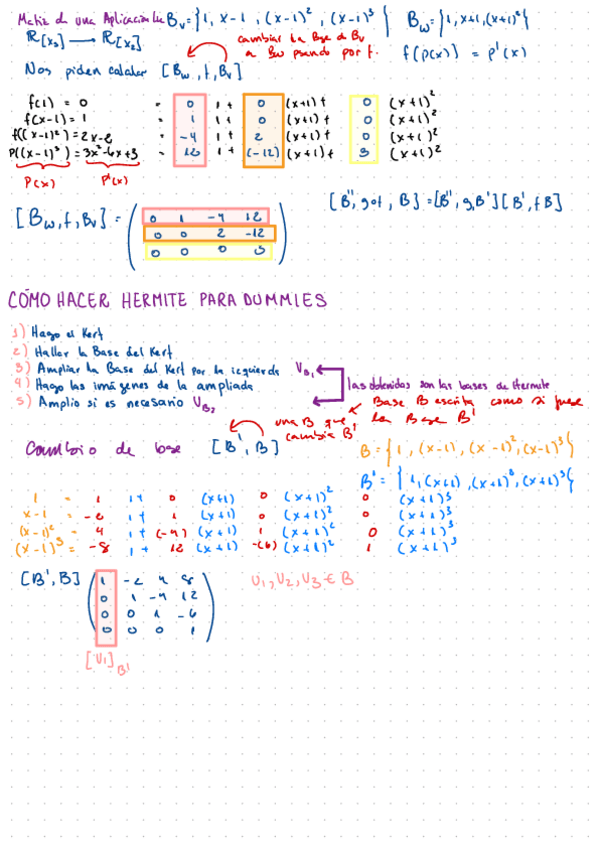 Matriz de una Aplicación Lin B_V = {1, x-1, (x-1)^2, (x-1)^3} B_W = {1, x+1, (x+1)^2}
R[x_3] → R[x_2] cambiar la Base de B_V a B_W pasando por f. f(p(x)) = p'(x)
Nos piden calcular [B_W, f, B_V]
f(1) = 0 = 0 1 + 0 (x+1) + 0 (x+1)^2
f(x-1) = 1 = 1 1 + 0 (x+1) + 0 (x+1)^2
f((x-1)^2) = 2x-2 = -4 1 + 2 (x+1) + 0 (x+1)^2
f((x-1)^3) = 3x^2-6x+3 = 12 1 + (-12) (x+1) + 3 (x+1)^2
p(x) p'(x)
[B'', g∘f, B] = [B'', g, B'] [B', f B]
[B_W, f, B_V] = ( 0 1 -4 12
0 0 2 -12
0 0 0 3 )
CÓMO HACER HERMITE PARA DUMMIES
1) Hago el Kerf
2) Hallar la Base del Kerf
3) Ampliar la Base del Kerf por la izquierda V_B1
4) Hago las imágenes de la ampliada las obtenidas son las bases de Hermite
5) Amplio si es necesario V_B2
Base B escrita como si fuese la Base B'
una B que cambia B'
Cambio de base [B', B] B = {1, (x-1), (x-1)^2, (x-1)^3}
B' = {1, (x+1), (x+1)^2, (x+1)^3}
1 = 1 1 + 0 (x+1) 0 (x+1)^2 0 (x+1)^3
x-1 = -2 1 + 1 (x+1) 0 (x+1)^2 0 (x+1)^3
(x-1)^2 = 4 1 + (-4) (x+1) 1 (x+1)^2 0 (x+1)^3
(x-1)^3 = -8 1 + 12 (x+1) -(6) (x+1)^2 1 (x+1)^3
[B', B] ( 1 -2 4 8 U1, U2, U3 ∈ B
0 1 -4 12
0 0 1 -6
0 0 0 1 )
[U1]_B'